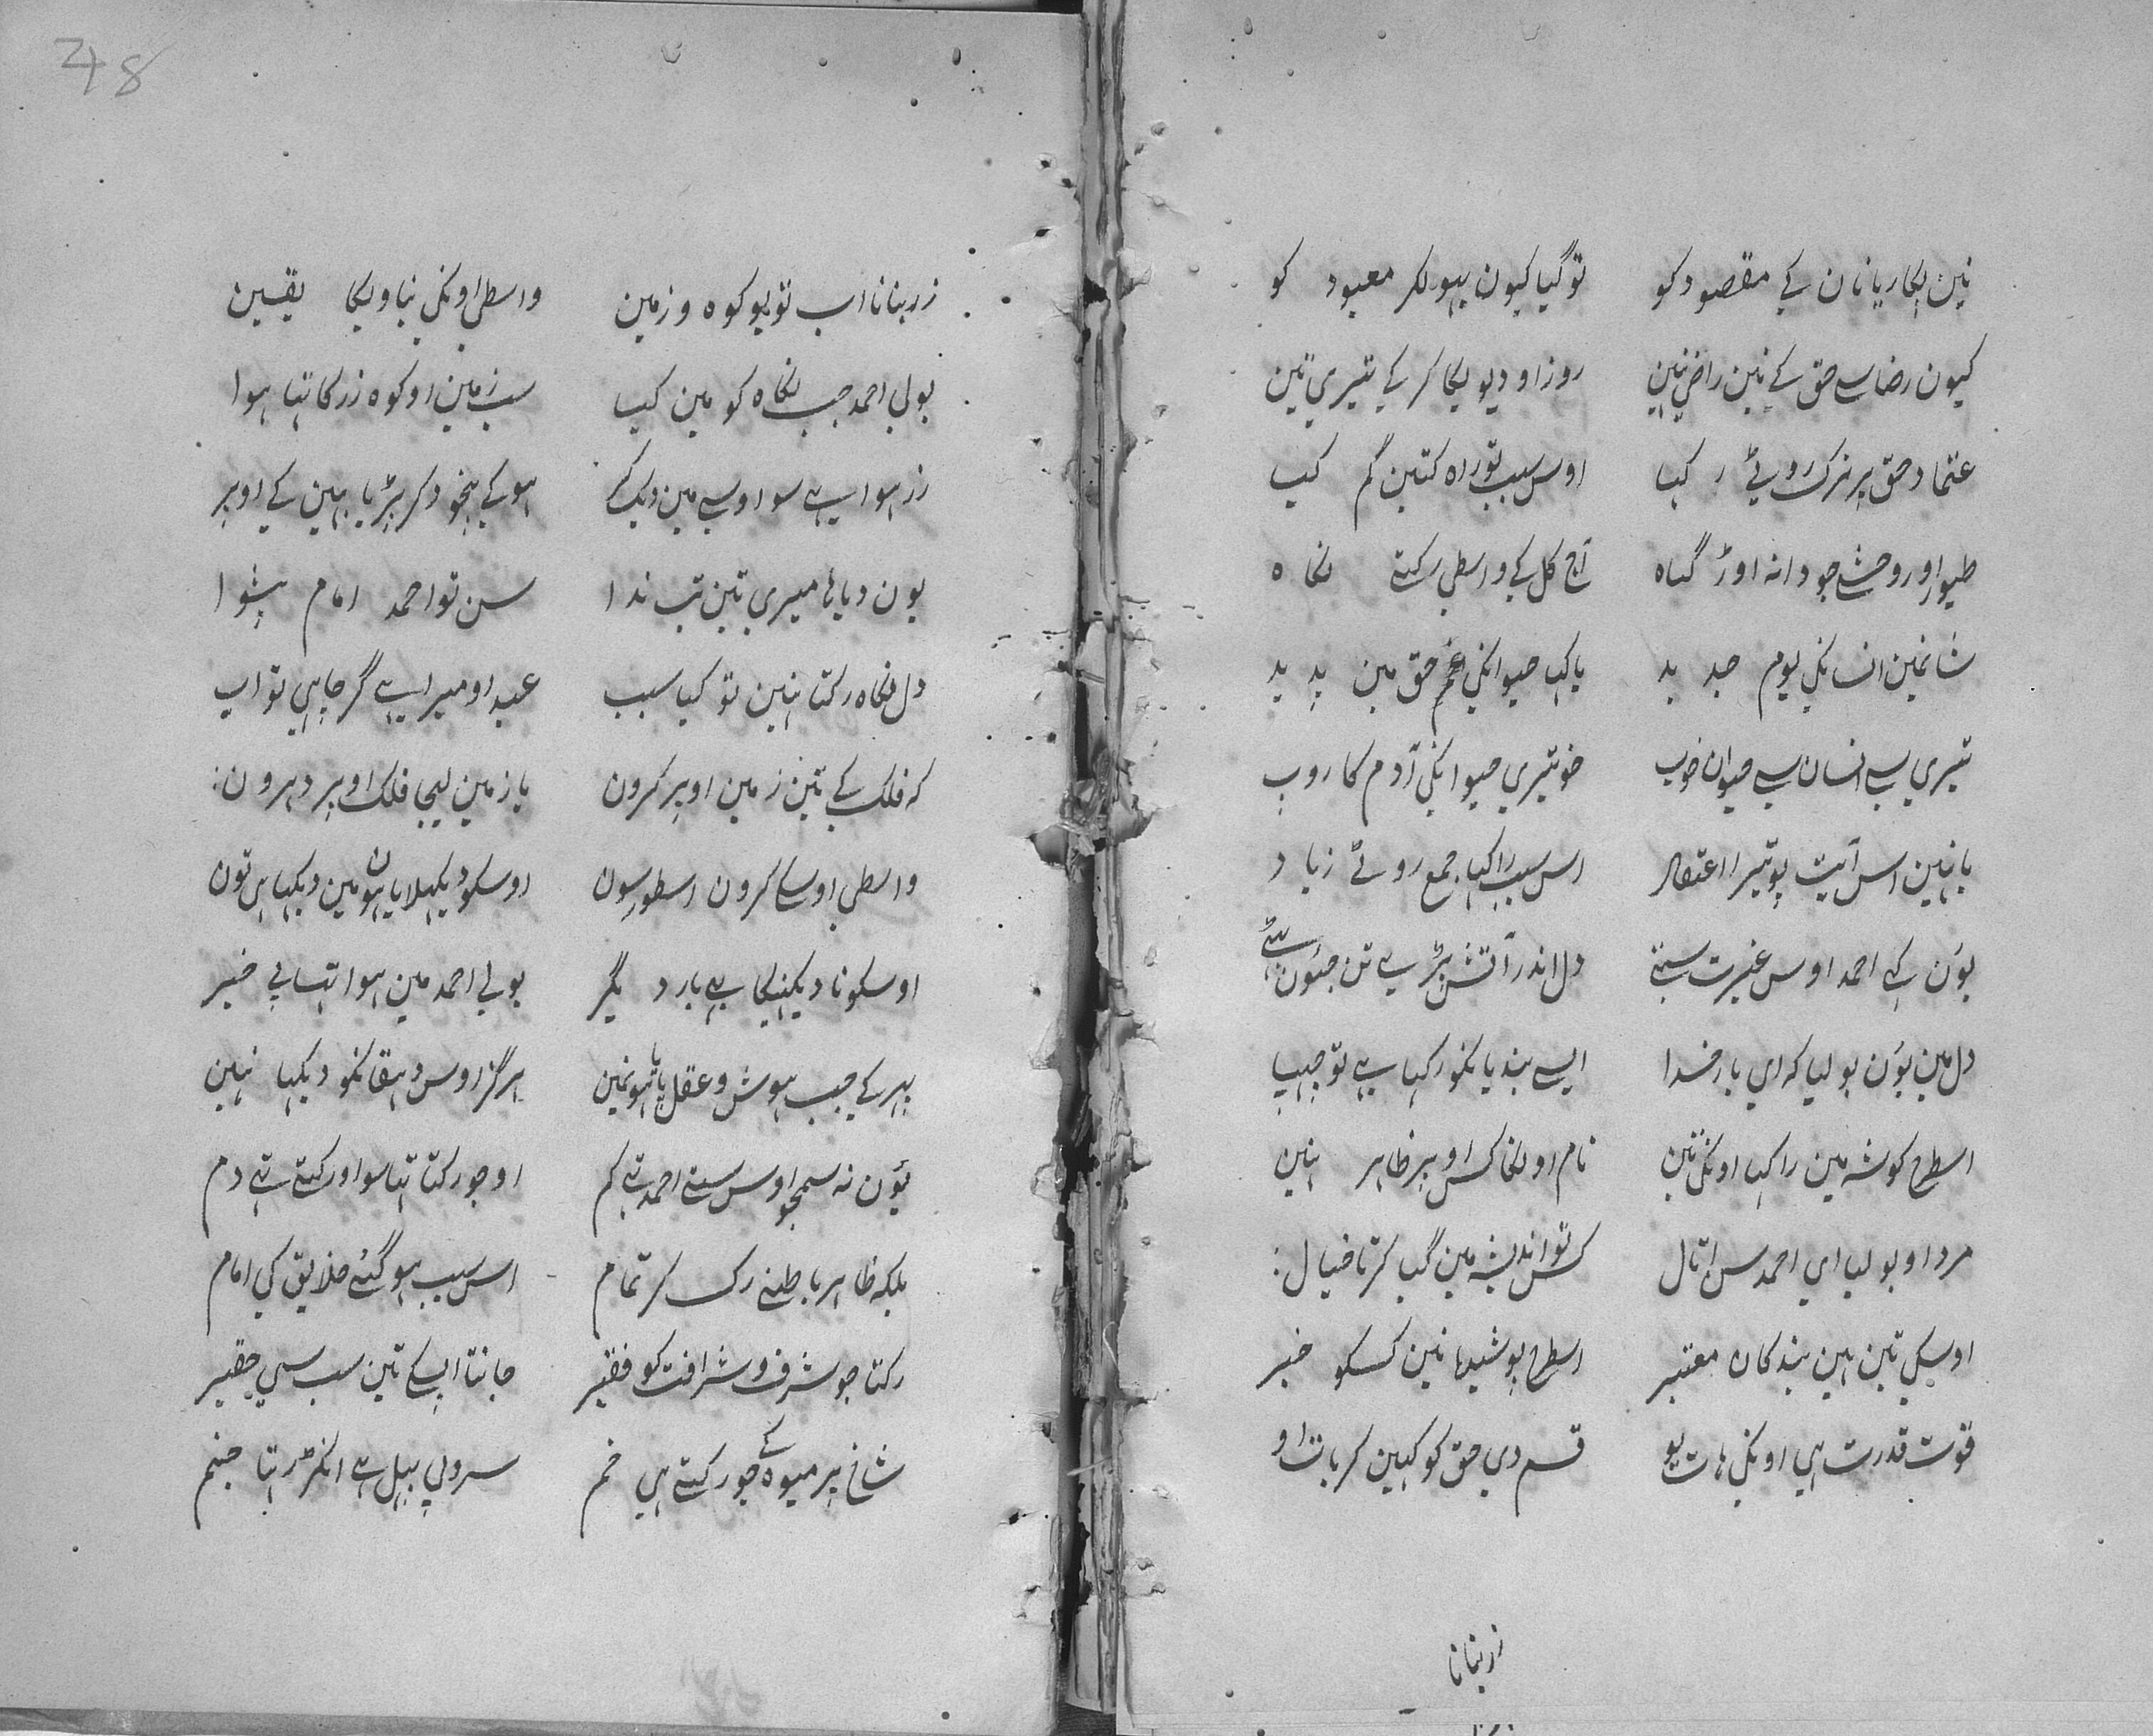 نین بکاریا نان کے مقصود کو تو گیا کیون بہولکر معبود کو
کیون رضا سے حق کے نین راضی نین روز او دیویگا کر کے تیری تین
عتماد حق پر نرک روٹی رکہا اوس سبب تو راہ کتین گم کیا
طیور اور وحش جو دانہ اوڑ گیاہ آج کل کے واسطے رکتے نگاہ
شانمین انسانکی یوم جدید یا کہا حیوانکی حق مین پدید
تیری سے انسان سے حیوان خوب خو تیری حیوانکی آدم کا روپ
یا نہین اس آیت پو تیرا اعتقاد اس سبب راکہا جمع روٹی زیاد
یوُن کہے احمد اوس غیرت ستے دل اندر آتش پڑی تن جیون ستے
دل مین یوُن بولیا کہ ای بار خدا ایسے بندیانکو رکہا ہے تو چہپا
اسطرح کوشہ مین راکہا اونکی تین نام اونکا کس اوپر ظاہر نہین
مرد او بولیا ای احمد سن اتال کس تو اندیشہ مین گیا کرتا خیال
اوسکی تین ہین بندکان معتبر اسطرح پوشیدہ نین کسکو خبر
قوت قدرت ہی اونکی ہات یو قسم دی حق کو کہین کر بات او
زر بنانا
48
زر بنانا اب تو یو کوہ و زمین واسطی اونکی بناویگا یقین
بولی احمد جب نگاہ کو مین کیا سب زمین او کوہ زر کا تہا ہوا
زر ہوا ہے سو اوسے مین دیک کے ہو کے بیخود کر پڑیا بہین کے اوپر
یون دیا ہا میری تین تب ندا سن تو احمد امام پیشوا
دل نگاہ رکتا نہین تو کیا سبب عبد او میرا ہے گر چاہی تو اب
کہ فلک کے تین زمین اوپر کرون یا زمین لیجا فلک اوپر دہرون
واسطی اوسکے کرون اسطور سون اوسکو دیکہلایا ہون مین دیکہا ہی تون
اوسکو نا دیکہنیکا ہے بار دگر بولی احمد مین ہوا تہا بی خبر
پہر کے جب ہوش و عقل پایا ہونمین ہرگز اوس دہقانکو دیکہا نہین
یوُن نہ سمجو اوس ستے احمد تہے کم او جو رکتا تہا سو او رکتے تہے دم
بلکہ ظاہر باطنے رک کر تمام اس سبب ہو گئے خلایق کی امام
رکتا جو شرف و شرافت کو فقیر جانتا اپسکے تین سب سی حقیر
شاخ پر میوہ کے جو رکتے ہی خم سرولی پہل ہے رہتا